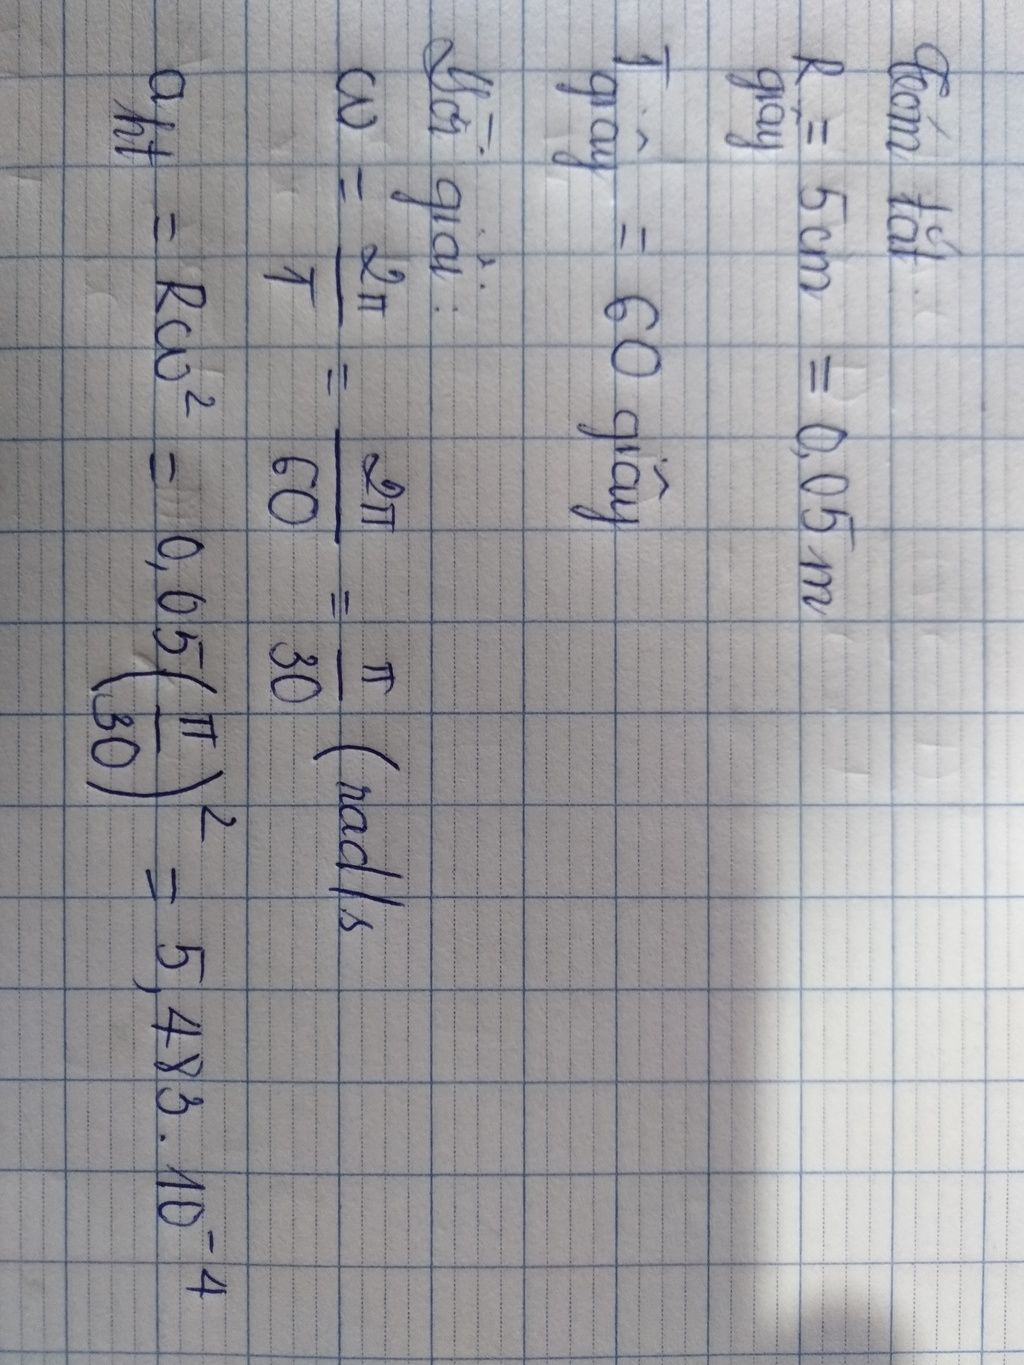 Tóm tắt
R giây = 5cm = 0,05m
T giây = 60 giây
Lời giải:
ω = 2π/T = 2π/60 = π/30 (rad/s
a ht = Rω² = 0,05(π/30)² = 5,483.10⁻⁴